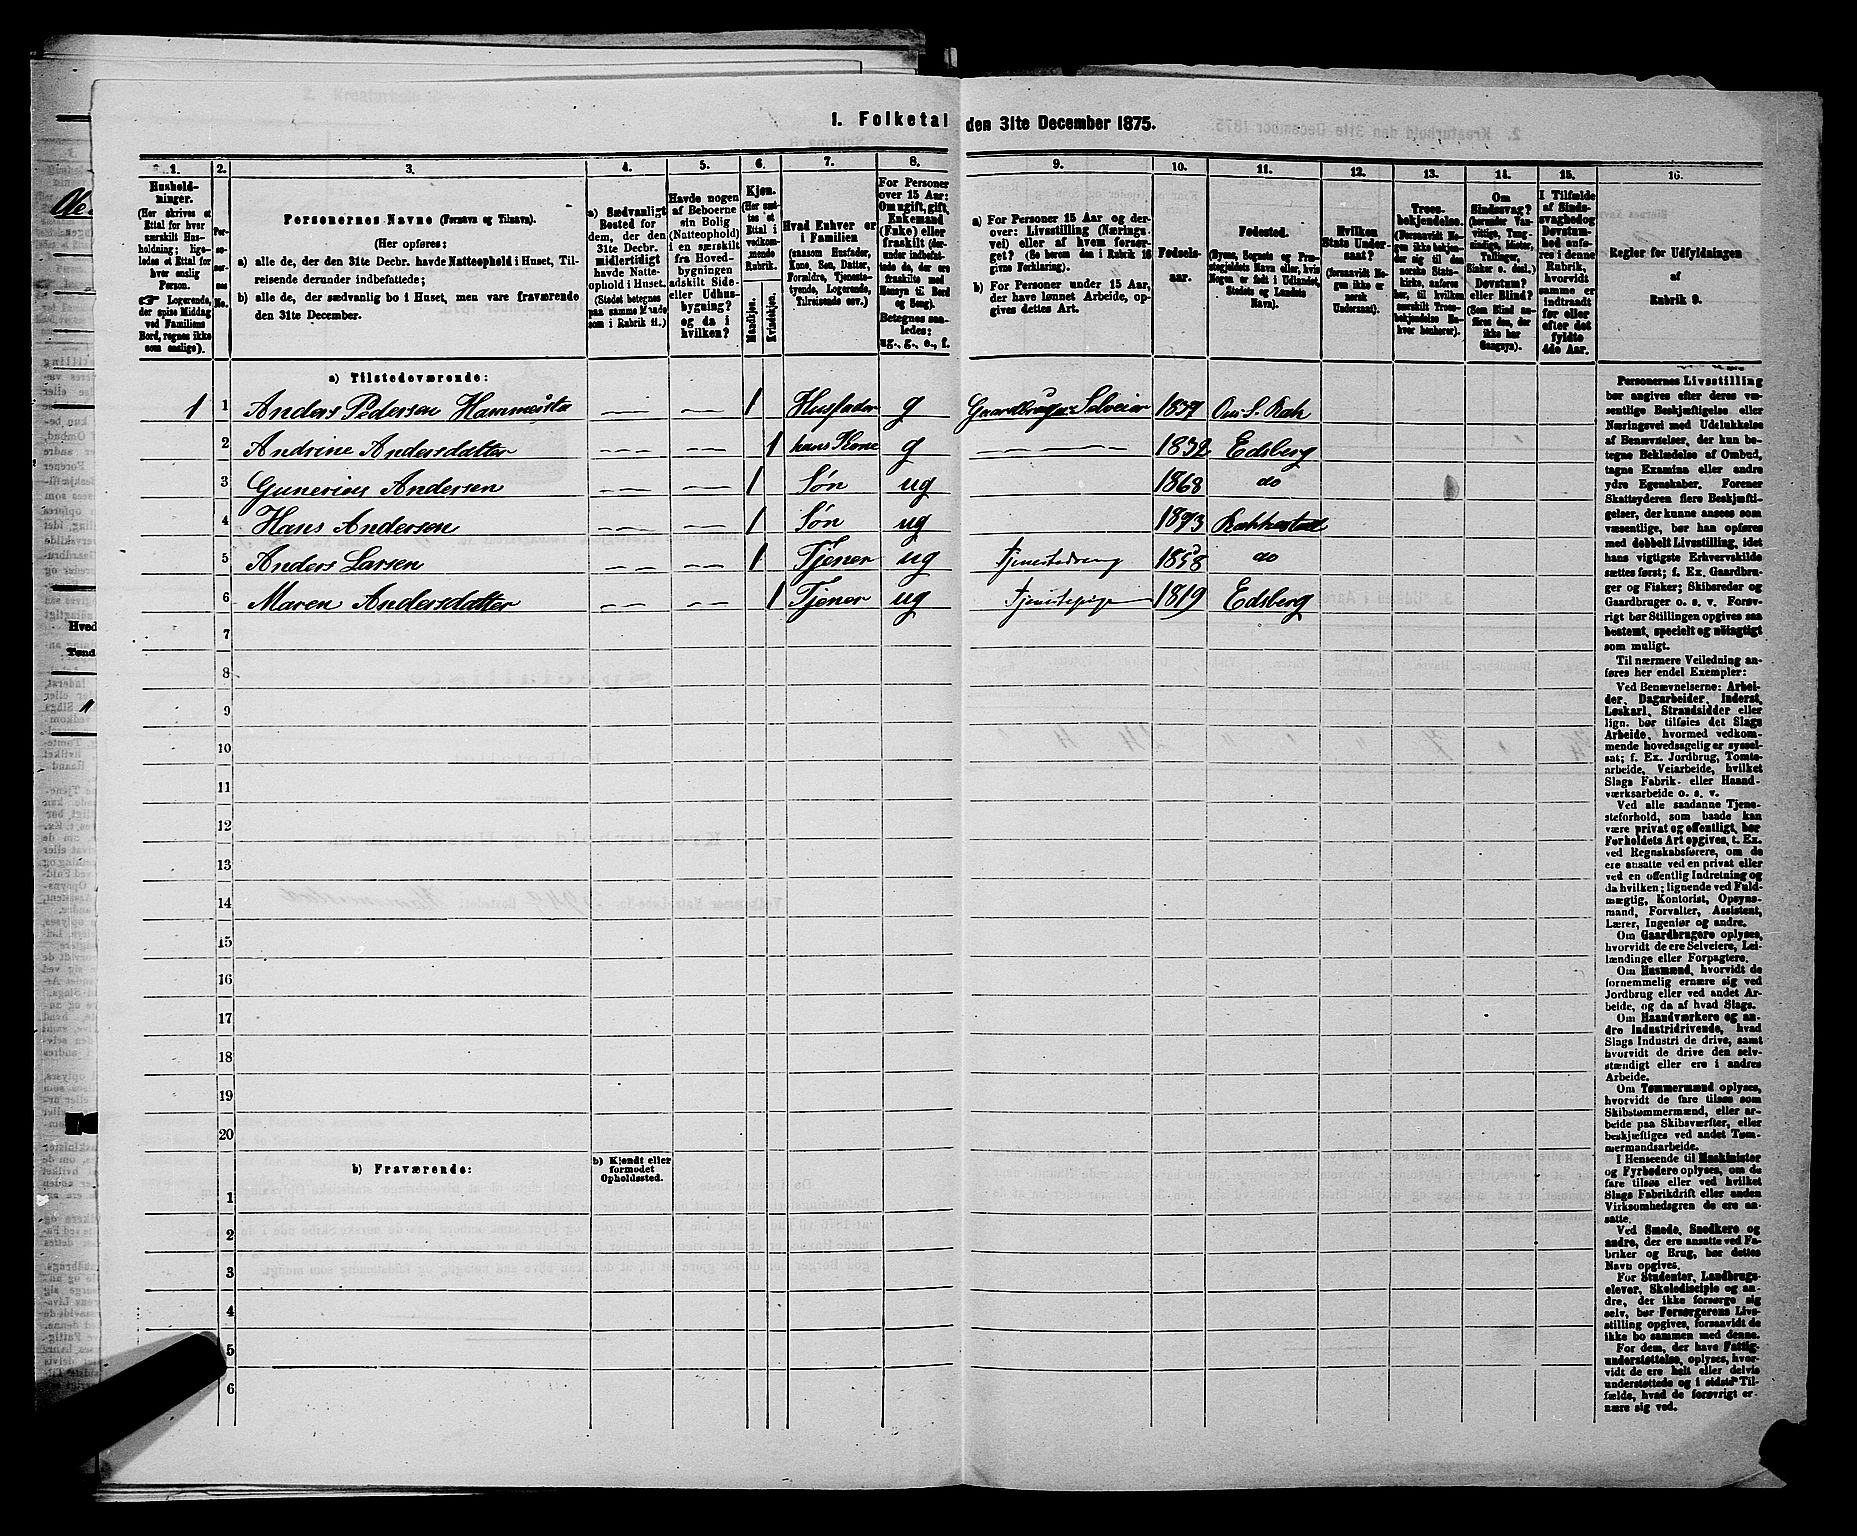 1. Folketal den 31te December 1875.
1. 2. 3. 4. 5. 6. 7. 8. 9. 10. 11. 12. 13. 14. 15. 16.
Hushold-
ninger.
(Her skrives et
Ettal for hver
særskilt Hus-
holdning; lige-
ledes et Ettal for
hver enslig
Person.
☞ Logerende,
der spise Middag
ved Familiens
Bord, regnes ikke
som enslige).
Per-
so-
ner-
nes
No.
Personernes Navne (Fornavn og Tilnavn).
(Her opføres:
a) alle de, der den 31te Decbr. havde Natteophold i Huset, Til-
reisende derunder indbefattede;
b) alle de, der sædvanlig bo i Huset, men vare fraværende
den 31te December.
a) Sædvanligt
Bosted for
dem, der den
31te Decbr.
midlertidigt
havde Natte-
ophold i Huset.
(Stedet betegnes
paa samme Maade
som i Rubrik 11.)
Havde nogen
af Beboerne
sin Bolig
(Natteophold)
i en særskilt
fra Hoved-
bygningen
adskilt Side-
eller Udhus-
bygning?
og da i
hvilken?
Kjøn.
(Her sæt-
tes et
Ettal i
vedkom-
mende
Rubrik.
Mandkjøn.
Kvindekjøn.
Hvad Enhver er
i Familien
(saasom Husfader,
Kone, Søn, Datter,
Forældre, Tjeneste-
tyende, Logerende,
Tilreisende osv.)
For Personer
over 15 Aar:
Om ugift, gift,
Enkemand
(Enke) eller
fraskilt (der-
under indbefat-
tede de, der ere
fraskilte med
Hensyn til Bord
og Seng).
Betegnes saa-
ledes:
ug., g., e., f.
a) For Personer 15 Aar og der-
over: Livsstilling (Nærings-
vei) eller af hvem forsør-
get? (Se herom den i Rubrik 16
givne Forklaring).
b) For Personer under 15 Aar,
der have lønnet Arbeide, op-
gives dettes Art.
Fødsels-
aar.
Fødested.
(Byens, Sognets og Præ-
stegjeldets Navn eller, hvis
Nogen er født i Udlandet,
Stedets og Landets
Navn).
Hvilken
Stats Under-
saat?
(forsaavidt No-
gen ikke er
norsk
Undersaat).
Troes-
bekjendelse.
(Forsaavidt No-
gen ikke bekjen-
der sig til den
norske Stats-
kirke, anføres
her, til hvilken
særskilt Troes-
bekjendelse En-
hver henhører).
Om
Sindssvag?
(herunder Van-
vittige, Tung-
sindige, Idioter,
Tullinger,
Sinker o. desl.)
Døvstum?
eller Blind?
(Som Blind an-
føres den, der
ikke har
Gangsyn).
I Tilfælde
af Sinds-
svaghed og
Døvstum-
hed anfø-
res i denne
Rubrik,
hvorvidt
samme er
indtraadt
før eller
efter det
fyldte
4de Aar.
Regler for Udfyldningen
af
Rubrik 9.
a) Tilstedeværende:
1 1 Anders Pedersen Hammersta — — 1 Husfader g Gaardbruger Selveier 1837 Rak
2 Andrine Andersdatter — — 1 hans Kone g — 1832 Edsberg
3 Gunerius Andersen — — 1 Søn ug 1868 do
4 Hans Andersen — — 1 Søn ug 1873 Rakkestad
5 Anders Larsen — — 1 Tjener ug Tjenestedreng 1858 do
6 Maren Andersdatter — — 1 Tjener ug Tjenestepige 1819 Edsberg
7
8
9
10
11
12
13
14
15
16
17
18
19
20
b) Fraværende:
b) Kjendt eller
formodet
Opholdssted.
1
2
3
4
5
6
Personernes Livsstilling
bør angives efter deres væ-
sentlige Beskjæftigelse eller
Næringsvei med Udelukkelse
af Benævnelser, der kun be-
tegne Beklædelse af Ombud,
tagne Examina eller andre
ydre Egenskaber. Forener
Skatteyderen flere Beskjæfti-
gelser, der kunne ansees som
væsentlige, bør han opføres
med dobbelt Livsstilling, idet
hans vigtigste Erhvervskilde
sættes først; f. Ex. Gaardbru-
ger og Fisker; Skibsreder og
Gaardbruger o. s. v. Forøv-
rigt bør Stillingen opgives saa
bestemt, specielt og nøiagtigt
som muligt.
Til nærmere Veiledning an-
føres her endel Exempler:
Ved Benævnelserne: Arbei-
der, Dagarbeider, Inderst,
Løskarl, Strandsidder eller
lign. bør tilføies det Slags
Arbeide, hvormed vedkom-
mende hovedsagelig er syssel-
sat; f. Ex. Jordbrug, Tomte-
arbeide, Veiarbeide, hvilket
Slags Fabrik- eller Haand-
værksarbeide o. s. v.
Ved alle saadanne Tjene-
steforhold, som baade kan
være privat og offentligt, bør
Forholdets Art opgives, t. Ex.
ved Regnskabsførere, om de
ere ansatte ved en privat eller
ved en offentlig Indretning og
da hvilken; lignende ved Fuld-
mægtig, Kontorist, Opsyns-
mand, Forvalter, Assistent,
Lærer, Ingeniør og andre.
Om Gaardbrugere oplyses,
hvorvidt de ere Selveiere, Lei-
lændinge eller Forpagtere.
Om Husmænd, hvorvidt de
fornemmelig ernære sig ved
Jordbrug eller ved andet Ar-
beide, og da af hvad Slags.
Om Haandværkere og an-
dre Industridrivende, hvad
Slags Industri de drive, samt
hvorvidt de drive den selv-
stændigt eller ere i andres
Arbeide.
Om Tømmermænd oplyses,
hvorvidt de fare tilsøs som
Skibstømmermænd, eller ar-
beide paa Skibsværfter, eller
beskjæftiges ved andet Tøm-
mermandsarbeide.
I Henseende til Maskinister
og Fyrbødere oplyses, om de
fare tilsøs eller ved hvilket
Slags Fabrikdrift eller anden
Virksomhedsgren de ere an-
satte.
Ved Smede, Snedkere og
andre, der ere ansatte ved Fa-
briker og Brug, bør dettes
Navn opgives.
For Studenter, Landbrugs-
elever, Skoledisciple og an-
dre, der ikke forsørge sig
selv, bør Forsørgerens Livs-
stilling opgives, forsaavidt de
ikke bo sammen med denne.
For dem, der have Fattig-
understøttelse, oplyses, hvor-
vidt de ere helt eller delvis
understøttede og i sidste Til-
fælde, hvad de forøvrigt er-
nære sig ved.